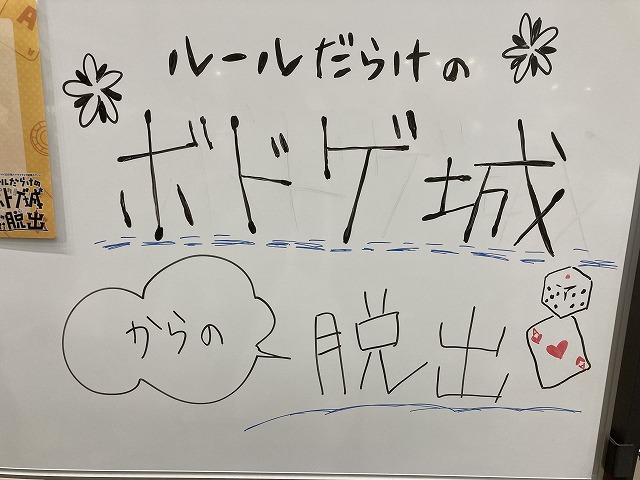 ルールだらけの
ボドゲ城
からの
脱出
A
A
A
ールだらけの
ドゲ城
脱出